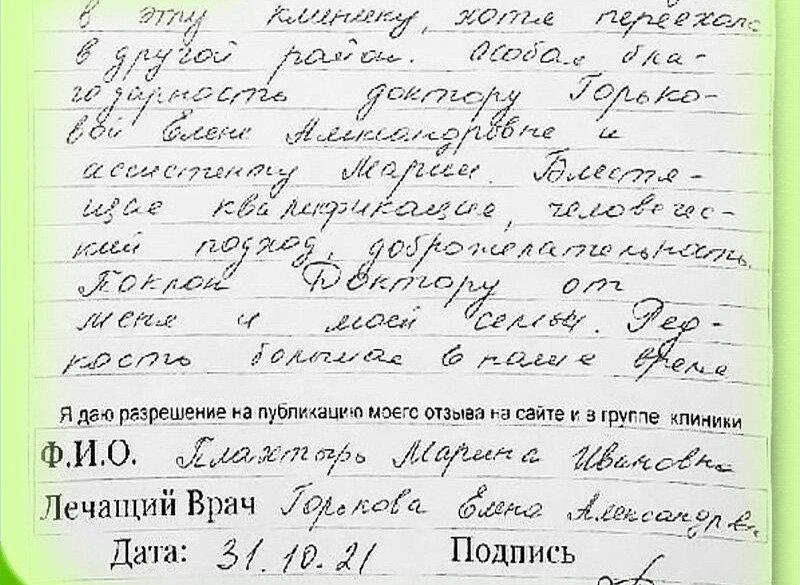 в эту клинику, хотя переехала
в другой район. Особая бла-
годарность доктору Горько-
вой Елене Александровне и
ассистенту Марии. Блестя-
щие квалификация, человечес-
кий подход, доброжелательность.
Поклон Доктору от
меня и моей семьи. Ред-
кость большая в наше время
Я даю разрешение на публикацию моего отзыва на сайте и в группе клиники
Ф.И.О. Плахтырь Марина Ивановна
Лечащий Врач Горькова Елена Александровн
Дата: 31.10.21 Подпись